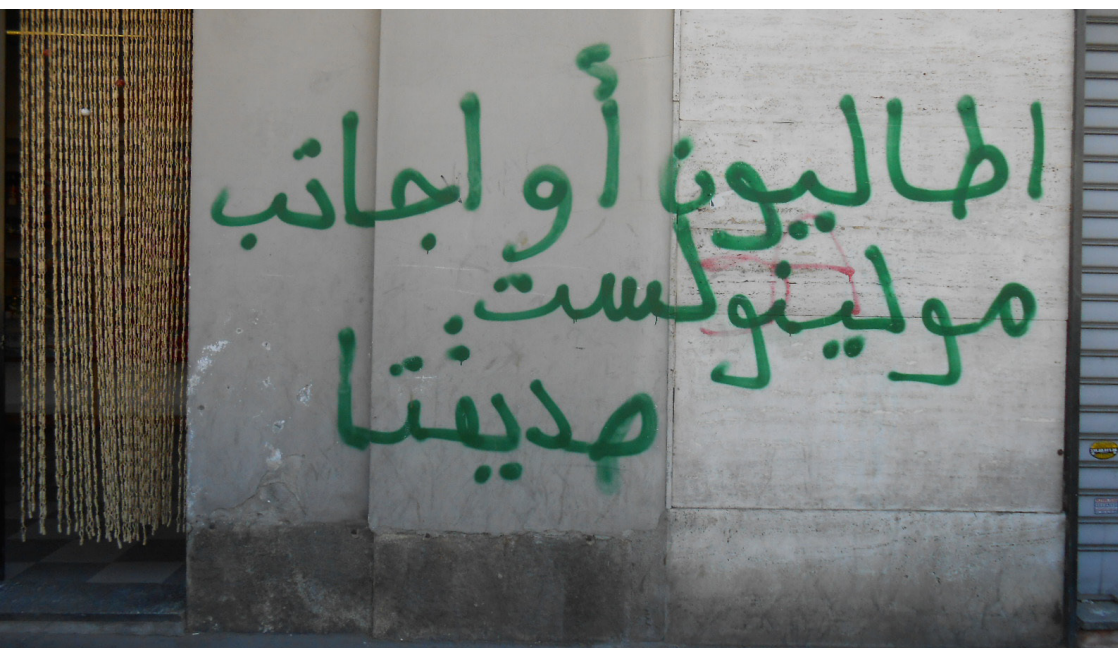 اطاليون أو اجانب
مولينولست
صديقتا